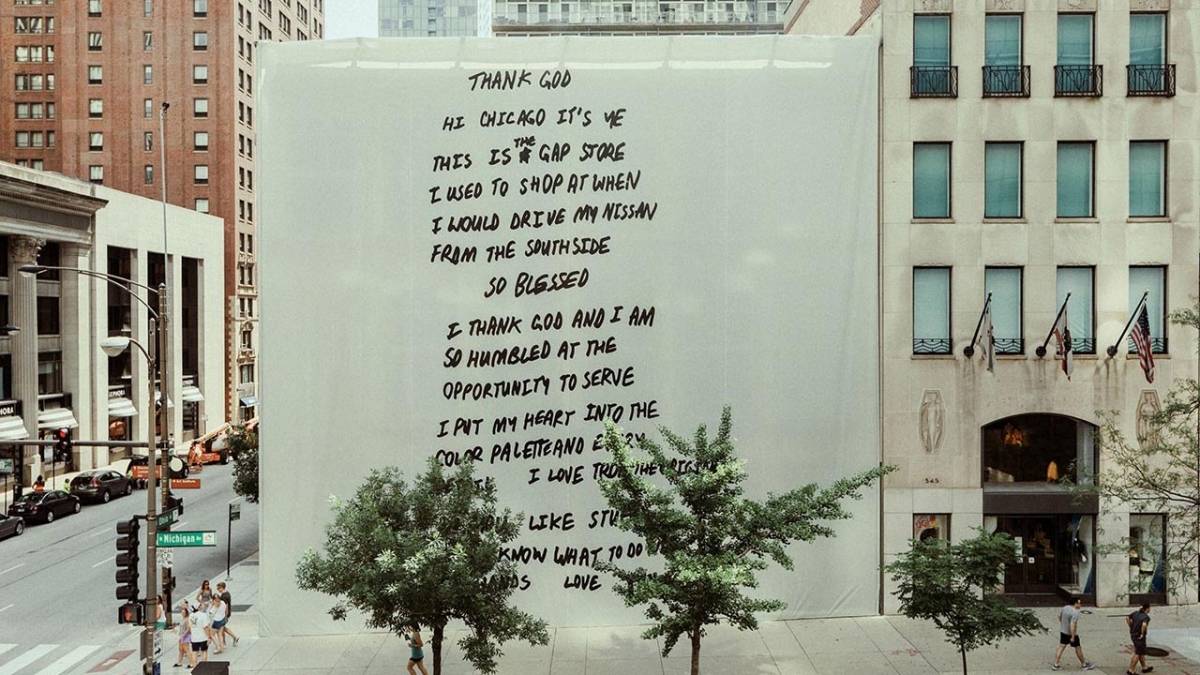 THANK GOD
HI CHICAGO IT'S YE
THIS IS THE GAP STORE
I USED TO SHOP AT WHEN
I WOULD DRIVE MY NISSAN
FROM THE SOUTHSIDE
SO BLESSED
I THANK GOD AND I AM
SO HUMBLED AT THE
OPPORTUNITY TO SERVE
I PUT MY HEART INTO THE
COLOR PALETTE AND
I LOVE
LIKE
KNOW WHAT TO DO
LOVE
SEPHORA
Michigan Av
545